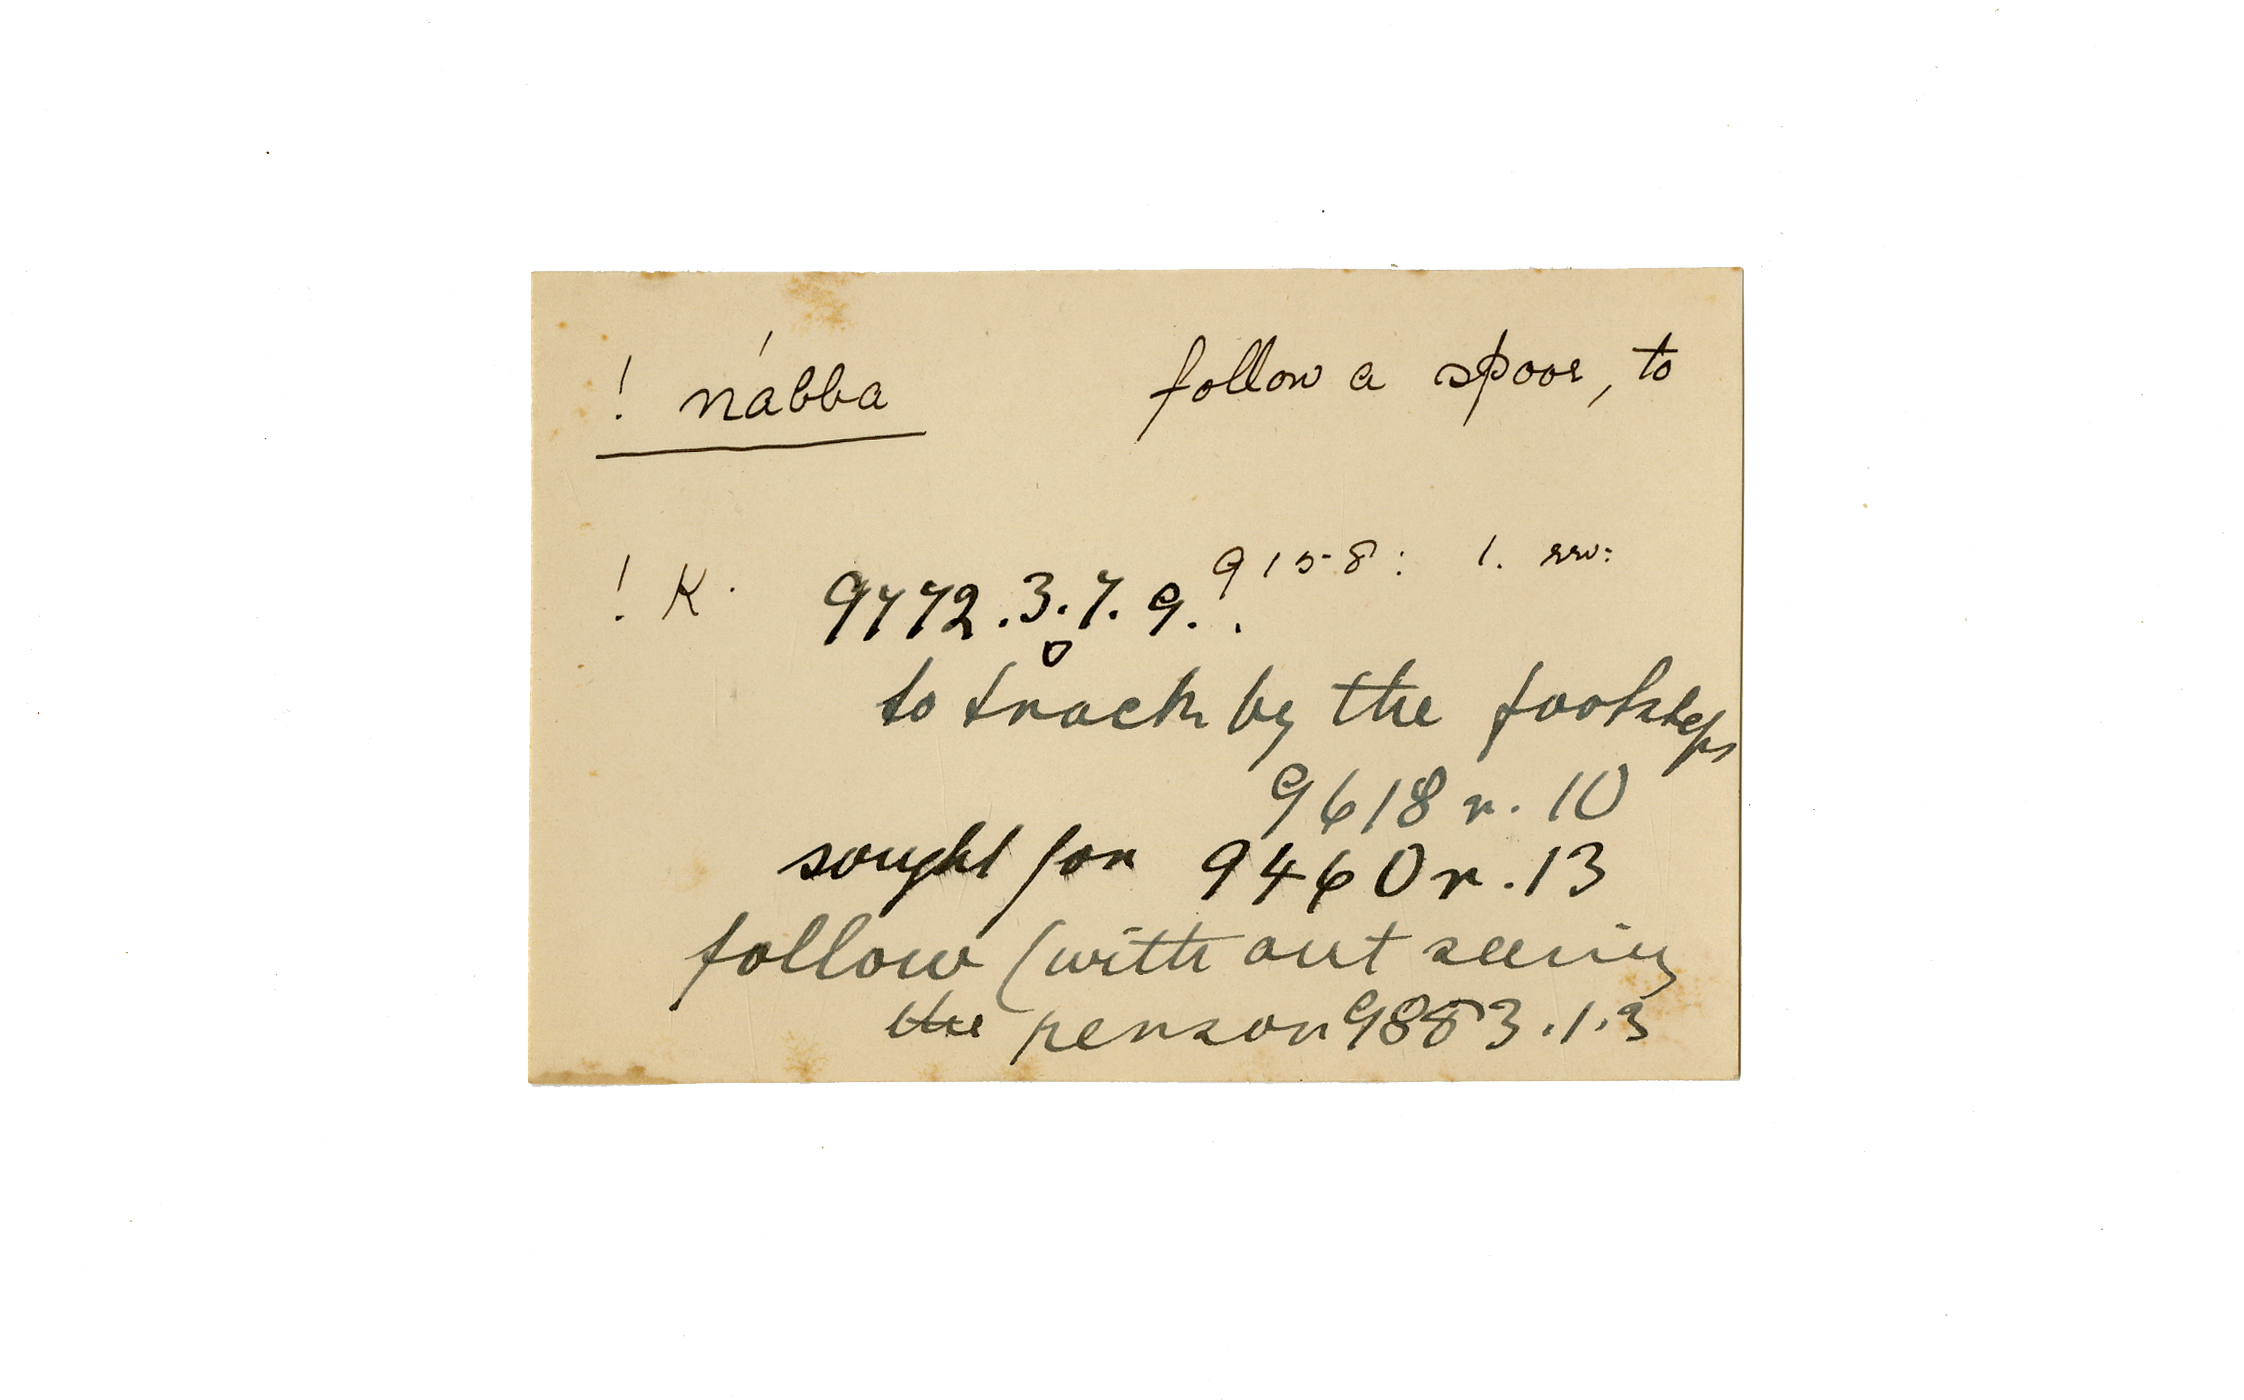 ! nábba follow a spoor, to
! K. 9772.3.7.9. 9158: 1. rev:
to track by the footsteps
9618 r. 10
sought for 9460 r. 13
follow (without seeing
the person 9883.1.3